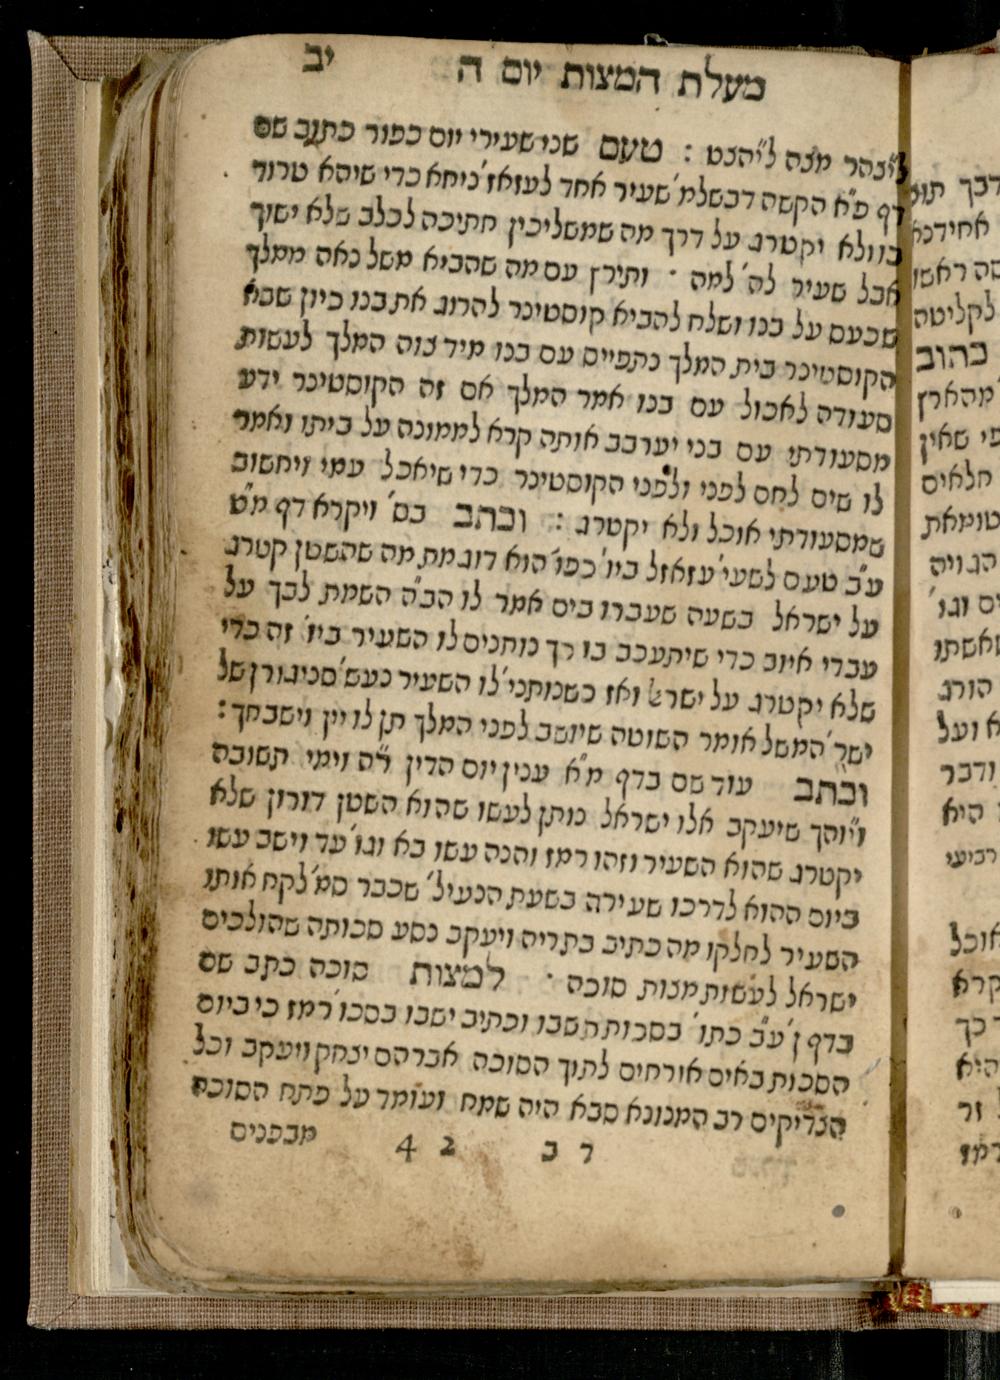 מעלת המצות יום ה יב
ל״נהר מצה ל״הכט : טעם שני שעירי יום כפור כתוב שם
דף פ״א הקשה דבשלמ׳ שעיר אחד לעזאז׳ ניחא כדי שיהא טרוד
בו ולא יקטרג על דרך מה שמשליכין חתיכה לכלב שלא ישוך
אבל שעיר לה׳ למה · ותירץ עם מה שהביא משל נאה ממלך
שכעס על בנו ושלח להביא קוסטינר להרוג את בנו כיון שבא
הקוסטינר בית המלך נתפייס עם בנו מיד צוה המלך לעשות
סעודה לאכול עם בנו אמר המלך אם זה הקוסטינר ידע
מסעודתי עם בני יערבב אותה קרא לממונה על ביתו ואמר
לו שים לחם לפני ולפני הקוסטינר כדי שיאכל עמי ויחשוב
שמסעודתי אוכל ולא יקטרג : וכתב בס׳ ויקרא דף מ״ט
ע״ב טעם לשעי׳ עזאזל ביו׳ כפו׳ הוא דוגמת מה שהשטן קטרג
על ישראל בשעה שעברו בים אמר לו הב״ה השמת לבך על
עבדי איוב כדי שיתעכב בו כך נותנים לו השעיר ביו׳ זה כדי
שלא יקטרג על ישראל ואז כשנותני׳ לו השעיר נעש׳ סניגורן של
ישר׳ המשל אומר השוטה שיושב לפני המלך תן לו יין וישבחך :
וכתב עוד שם בדף מ״א ענין יום הדין ר״ה וימי תשובה
וי״הך שיעקב אלו ישראל נותן לעשו שהוא השטן דורון שלא
יקטרג שהוא השעיר וזהו רמז והנה עשו בא וגו׳ עד וישב עשו
ביום ההוא לדרכו שעירה בשעת הנעיל׳ שכבר סמ׳ לקח אותו
השעיר לחלקו מה כתיב בתריה ויעקב נסע סכותה שהולכים
ישראל לעשות מצות סוכה · למצות סוכה כתב שם
בדף ן׳ ע״ב כתו׳ בסכות תשבו וכתיב ישבו בסכו׳ רמז כי ביום
הסכות באים אורחים לתוך הסוכה אברהם יצחק ויעקב וכל
הצדיקים רב המנונא סבא היה שמח ועומד על פתח הסוכה
ד ב 2 4 מבפנים